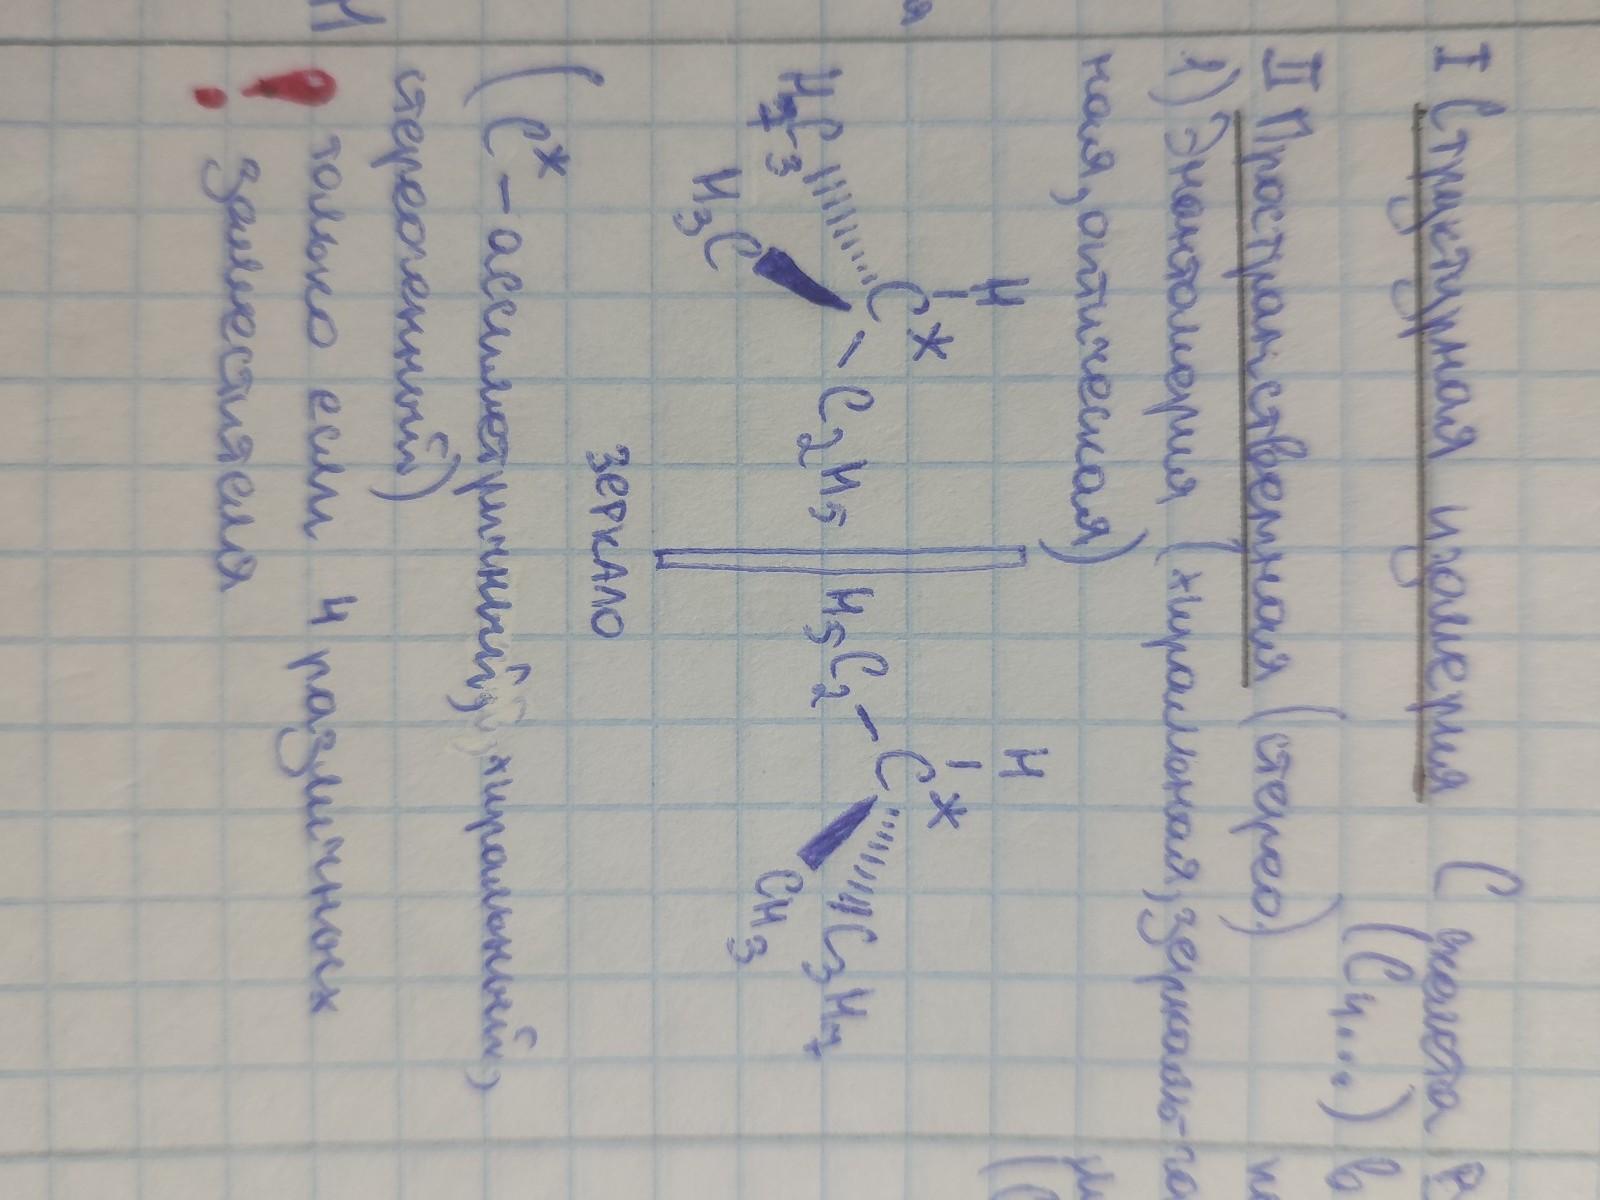 I Структурная изомерия С скелета
(C4...)
II Пространственная (стерео)
1) Энантиомерия (хиральная, зеркаль-
ная, оптическая)
H H
H7C3 C* C2H5 H5C2 – C* C3H7
H3C CH3
ЗЕРКАЛО
(C* – ассиметричный, хиральный,
стереогенный)
! только если 4 различных
заместителя